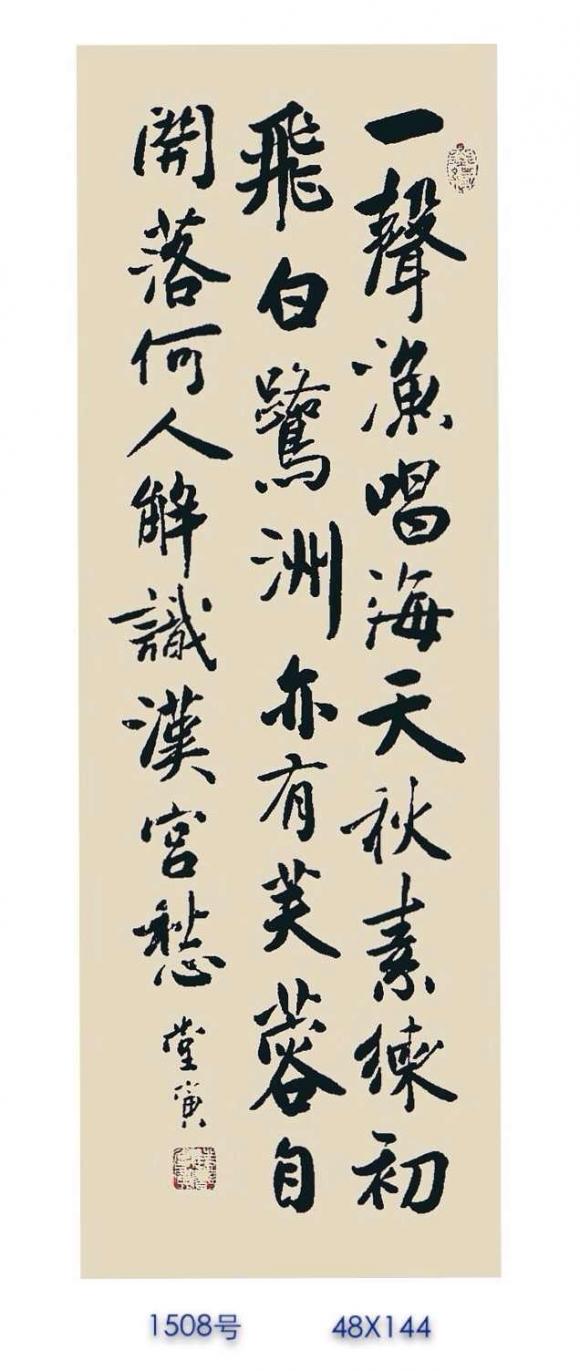 一聲漁唱海天秋素練初
飛白鷺洲亦有芙蓉自
開落何人解識漢宮愁
堂寅
1508号
48X144